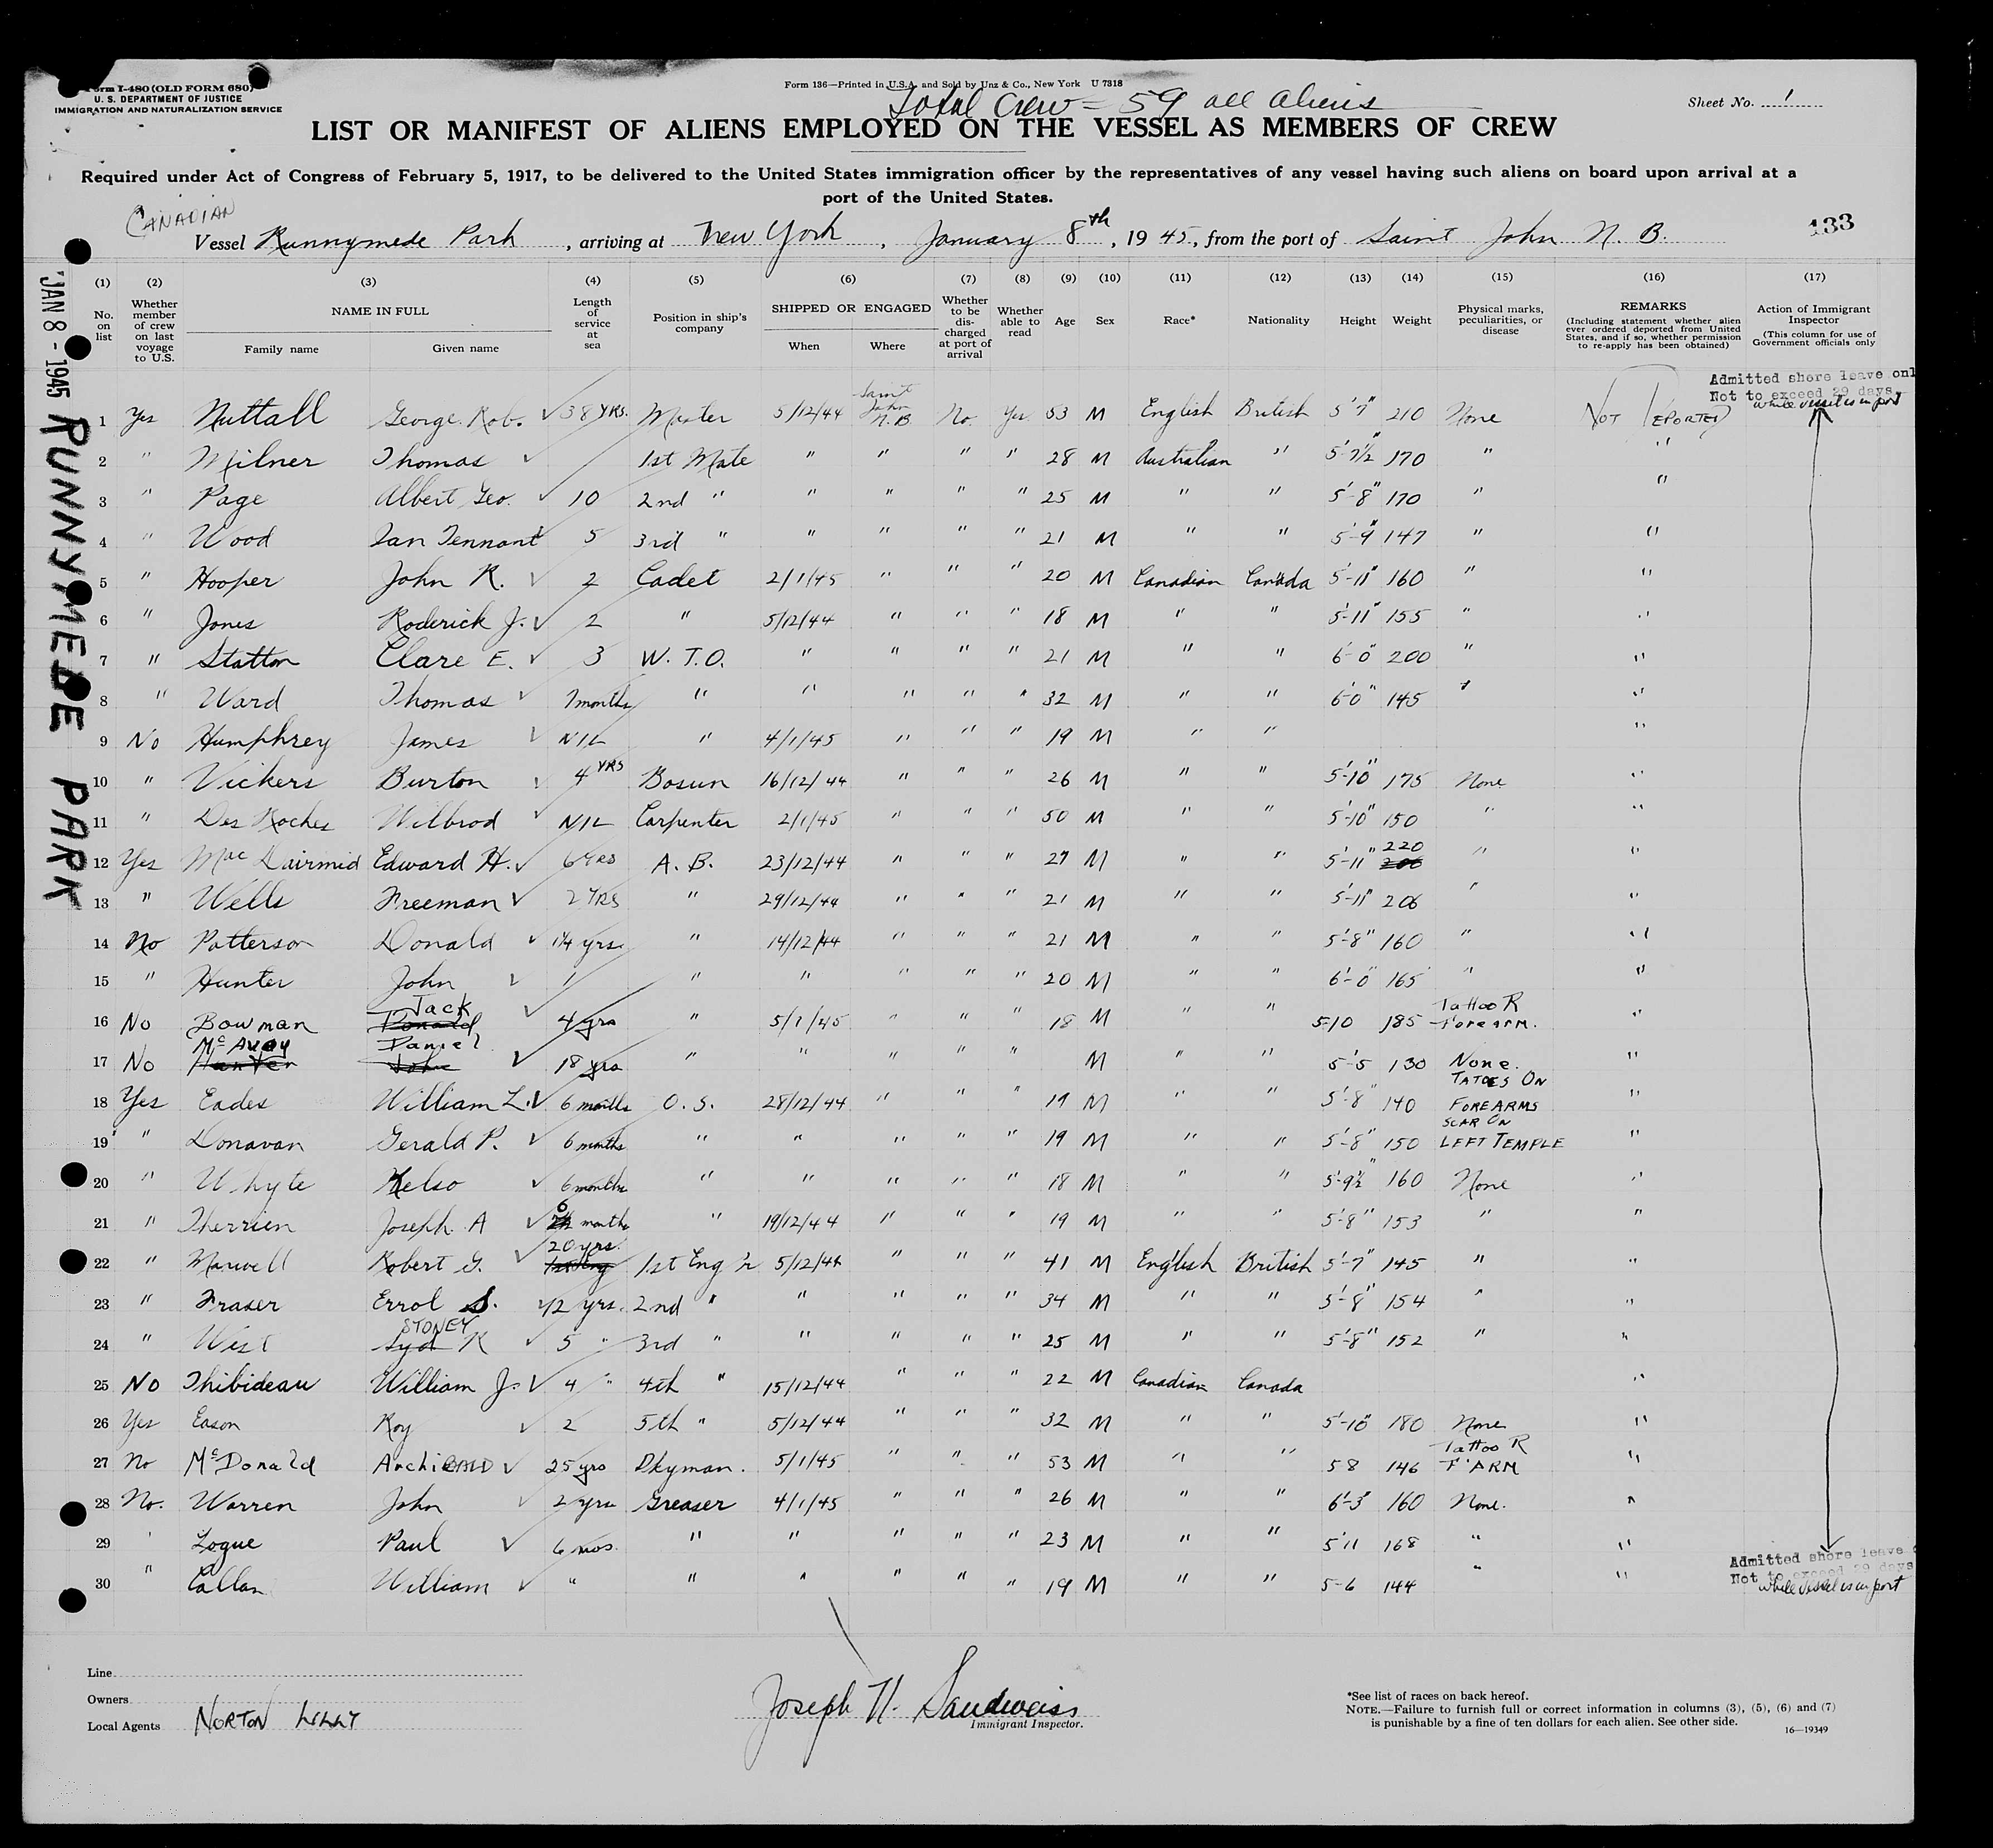 Form I-480 (OLD FORM 680)
U. S. DEPARTMENT OF JUSTICE
IMMIGRATION AND NATURALIZATION SERVICE
Form 136—Printed in U.S.A. and Sold by Unz & Co., New York U 7318
Total Crew = 59 all aliens
Sheet No. 1
LIST OR MANIFEST OF ALIENS EMPLOYED ON THE VESSEL AS MEMBERS OF CREW
Required under Act of Congress of February 5, 1917, to be delivered to the United States immigration officer by the representatives of any vessel having such aliens on board upon arrival at a
port of the United States.
CANADIAN
Vessel Runnymede Park, arriving at New York, January 8th, 1945, from the port of Saint John N. B.
133
JAN 8 - 1945 RUNNYMEDE PARK
(1) (2) (3) (4) (5) (6) (7) (8) (9) (10) (11) (12) (13) (14) (15) (16) (17)
No. on list
Whether member of crew on last voyage to U.S.
NAME IN FULL
Family name Given name
Length of service at sea
Position in ship's company
SHIPPED OR ENGAGED
When Where
Whether to be discharged at port of arrival
Whether able to read
Age Sex Race* Nationality Height Weight
Physical marks, peculiarities, or disease
REMARKS
(Including statement whether alien ever ordered deported from United States, and if so, whether permission to re-apply has been obtained)
Action of Immigrant Inspector
(This column for use of Government officials only
Admitted shore leave onl
Not to exceed 29 days
while vessel is in port
1 Yes Nuttall George Rob. 38 YRS. Master 5/12/44 Saint John N.B. No Yes 53 M English British 5'7" 210 None NOT DEPORTED
2 " Milner Thomas 1st Mate " " " " 28 M Australian " 5-7½" 170 " "
3 " Page Albert Geo. 10 2nd " " " " " 25 M " " 5'-8" 170 " "
4 " Wood Ian Tennant 5 3rd " " " " " 21 M " " 5'-9" 147 " "
5 " Hooper John R. 2 Cadet 2/1/45 " " " 20 M Canadian Canada 5'-11" 160 " "
6 " Jones Roderick J. 2 " 5/12/44 " " " 18 M " " 5'-11" 155 " "
7 " Statton Clare E. 3 W. T.O. " " " " 21 M " " 6'-0" 200 " "
8 " Ward Thomas 7months " " " " " 32 M " " 6'0" 145 " "
9 No Humphrey James NIL " 4/1/45 " " " 19 M " " "
10 " Vickers Burton 4 YRS Bosun 16/12/44 " " " 26 M " " 5'-10" 175 None "
11 " Des Roches Wilbrod NIL Carpenter 2/1/45 " " " 50 M " " 5'-10" 150 " "
12 Yes MacDairmid Edward H. 6YRS A. B. 23/12/44 " " " 27 M " " 5'-11" 220 " "
13 " Wells Freeman 2 YRS " 29/12/44 " " " 21 M " " 5'-11" 206 " "
14 No Patterson Donald 1¼ yrs. " 14/12/44 " " " 21 M " " 5'-8" 160 " "
15 " Hunter John 1 " " " " " 20 M " " 6'-0" 165 " "
16 No Bowman Donald Jack 4 yrs " 5/1/45 " " " 18 M " " 5-10 185 Tattoo R Forearm. "
17 No Hunter McAvoy John Daniel 18 yrs " " " " " M " " 5'-5 130 None. "
18 Yes Eades William L. 6 months O. S. 28/12/44 " " " 19 M " " 5'-8" 140 TATOES ON FOREARMS "
19 " Donavan Gerald P. 6 months " " " " " 19 M " " 5'-8" 150 SCAR ON LEFT TEMPLE "
20 " Whyte Kelso 6 months " " " " " 18 M " " 5'-9½" 160 None "
21 " Therrien Joseph A 6 months " 19/12/44 " " " 19 M " " 5'-8" 153 " "
22 " Maxwell Robert G. 20 yrs. 1st Eng'r 5/12/44 " " " 41 M English British 5'-7" 145 " "
23 " Fraser Errol S. 12 yrs. 2nd " " " " " 34 M " " 5'-8" 154 " "
24 " West Syd STONEY K 5 " 3rd " " " " " 25 M " " 5'-8" 152 " "
25 NO Thibideau William J. 4 " 4th " 15/12/44 " " " 22 M Canadian Canada "
26 Yes Eason Roy 2 5th " 5/12/44 " " " 32 M " " 5'-10" 180 None "
27 No McDonald ArchiBALD 25 yrs Dkyman. 5/1/45 " " " 53 M " " 5 8 146 Tattoo R F'ARM "
28 No. Warren John 2 yrs Greaser 4/1/45 " " " 26 M " " 6'-3" 160 None. "
29 ' Logue Paul 6 mos. " " " " " 23 M " " 5'11 168 " "
30 " Callan William " " " " " " 19 M " " 5-6 144 " "
Admitted shore leave
Not to exceed 29 days
while vessel is in port
Line
Owners
Local Agents NORTON LILLY
Joseph N. Sandweiss
Immigrant Inspector.
*See list of races on back hereof.
NOTE.—Failure to furnish full or correct information in columns (3), (5), (6) and (7)
is punishable by a fine of ten dollars for each alien. See other side.
16—19349